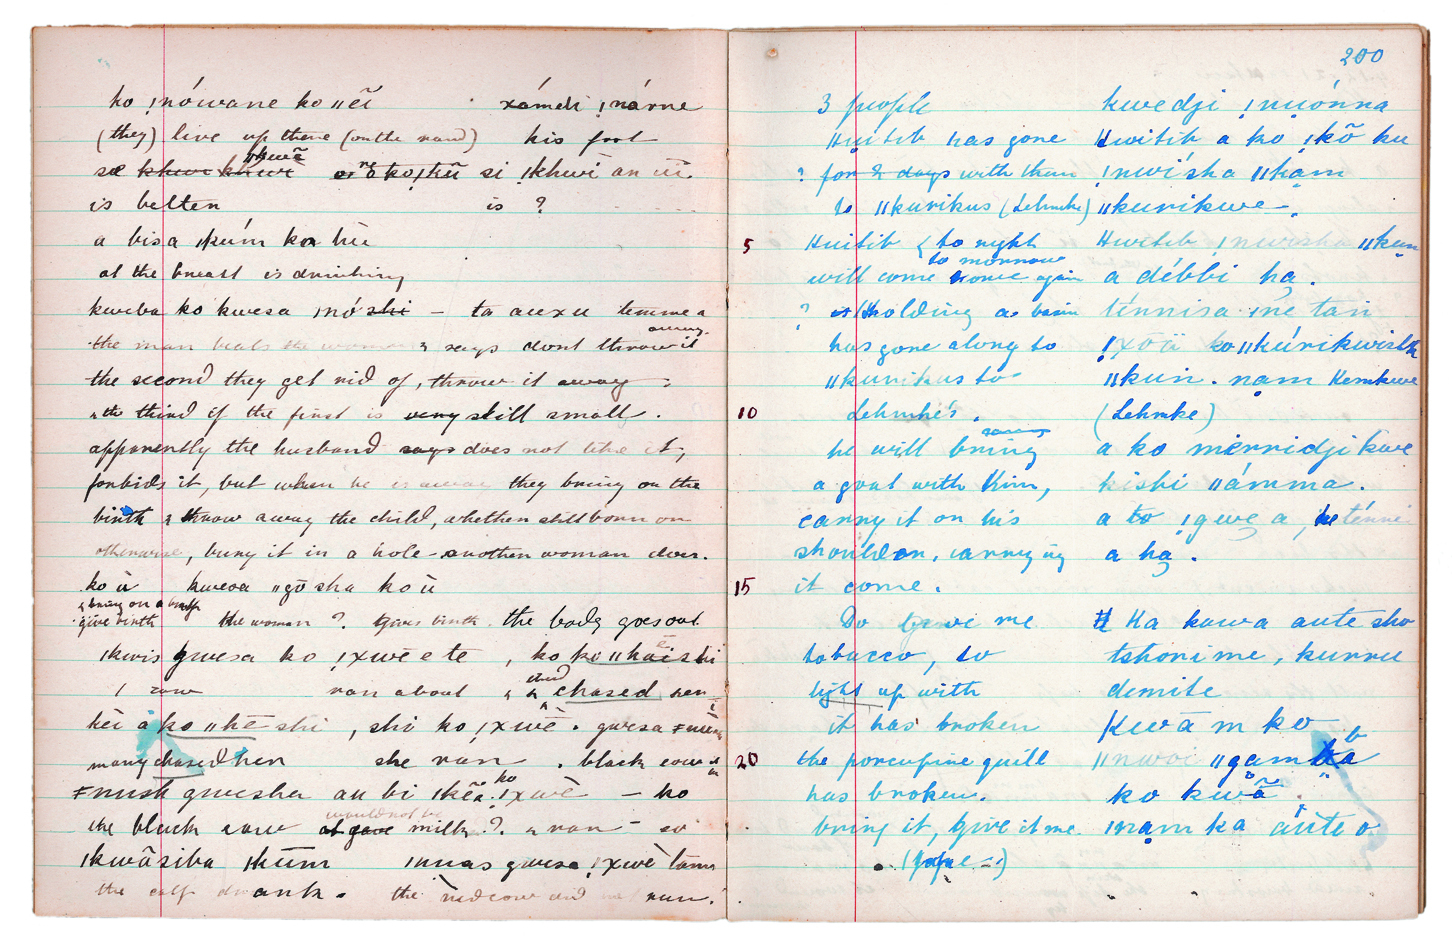 ko ǃnówane ko ǁēĩ xámdi ǃnárne
(they) live up there (on the road) his foot
ǁkwã
sæ khwi khwi ko ǃkũ si ǀkhwī an ũĩ
is belten is ?
a bisa ǀkúm ko hũ
at the breast is drinking
kweba ko kwesa ǀnó shi – ta auxu temme a
away.
the man beats the woman & says dont throw it
the second they get rid of, throw it away :
& the third if the first is very still small.
apparently the husband says does not like it,
forbids it, but when he is away they bring on the
birth & throw away the child, whether stillborn or
otherwise, bury it in a hole – another woman does.
ko ù kwesa ǁgõ sha ko ù
& bring on a birth
give birth the woman ? gives birth. the body goes out
ǀkwis gwesa ko ǃxwē e te , ko ko ǁhāi shi
1 cow ran about & chased her
hèi à ko ǁhē shi , shi ko ǃxwē . gwesa
many chased her she ran . black cow
ǂnush gwesha au bi ǀkēa ko ǃxwē – ko
would not be
the black cow at gave milk ? & ran – so
ǀkwāsiba ǀkūm ǀnuas gwesa ǃxwē tama
the calf drank. the red cow did not run.
200
3 people kwedji ǃnuónna
Huitib has gone Hwitib a ko ǃkõ ku
? for 2 days with them ǃnwísha ǁkam
to ǁkurikus (Lehmke) ǁkurikwe
5 Huitib { to night Hwitib ǃnwisha ǁkam
to morrow
will come home again a débbi ha.
? is (th holding a bann ténnisa ne tan
has gone along to ǃxōā ko ǁkúrikwisth
ǁkurikus to ǁkun. nam Hemkwe
10 Lehmke's. (Lehmke)
he will bring a ko mèrridji kwe
a goat with him, kisbi ǁámma.
carry it on his a to ǀgwe a, he ténné
shoulder, carrying a ha.
15 it come.
Do give me Ha kawa aute sho
tobacco, to tshoni me, kurru
light up with demite
it has broken Kwā m ko
20 the porcupine quill ǁnwoi ǁgam
has broken. ko kwã.
bring it, give it me ǀnam ka áute o
(pipe –)